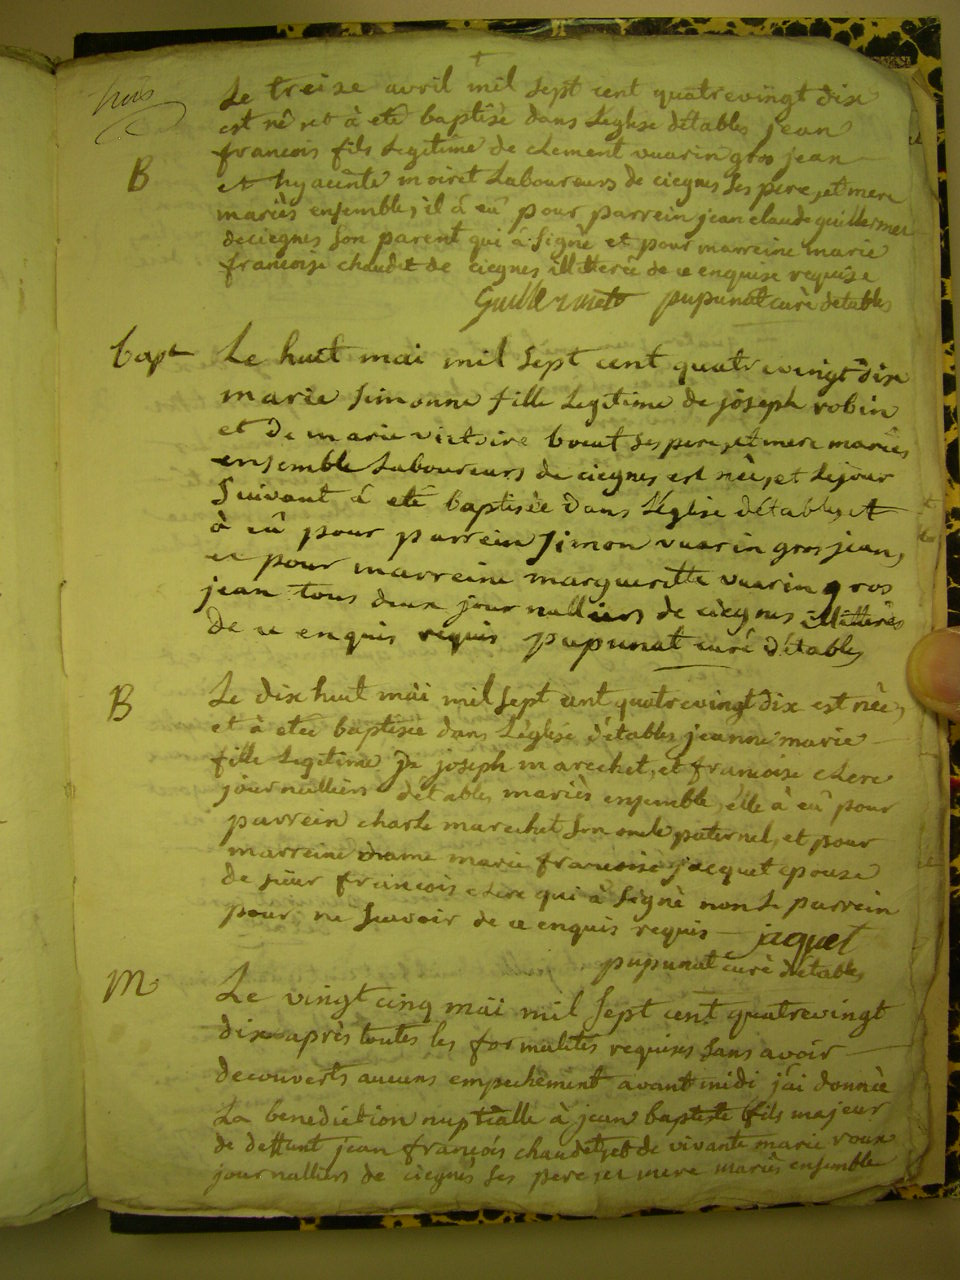 Le treize avril mil sept cent quatrevingt dix
est né et à eté baptisé dans L'eglise d'étables jean
francois fils Legitime de clement vuarin gros jean
et hyacinte moiret Laboureurs de ciegnes ses pere, et mere
mariès ensembles, il à eû pour parrein jean claude guillermet
de ciegnes son parent qui à signè et pour marreine marie
francoise chaudet de ciegnes illiterée de ce enquise requise
Guillermet pupunat curé détables
B
bapt
Le huit mai mil sept cent quatrevingt dix
marie simonne fille Legitime de joseph robin
et de marie victoire bout ses pere, et mere mariès
ensemble Laboureurs de ciegnes est nèe, et Lejour
suivant à eté baptisèe dans L'eglise détables, et
à eû pour parrein simon vuarin gros jean,
et pour marreine margueritte vuarin gros
jean tous deux journalliers de ciegnes illiterés
de ce enquis requis pupunat curé détables
B
Le dix huit mai mil sept cent quatrevingt dix est née,
et à etée baptisée dans L'eglise d'étables jeanne marie
fille Legitime de joseph marechet, et francoise clerc
journalliers d'étables, mariès ensemble, elle à eû pour
parrein charle marechet son oncle paternel, et pour
marreine dame marie francoise jacquet epouse
de sieur francois clerc qui à signè non Le parrein
pour ne sçavoir de ce enquis requis jaquet
pupunat curé détables
M
Le vingt cinq mai mil sept cent quatrevingt
dix après toutes les formalités requises sans avoir
decouverts aucuns empechement avant midi j'ai donnèe
La benediction nuptialle à jean baptiste fils majeur
de deffunt jean françois chaudet, et de vivante marie roux
journalliers de ciegnes ses pere, et mere mariès ensemble